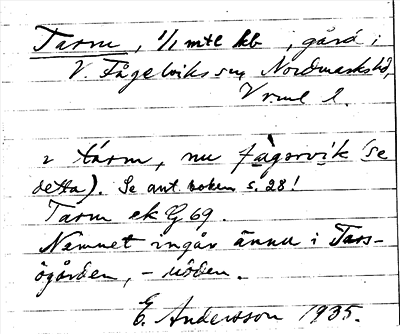 Tarm, 1/1 mtl kb, gård i
V. Fågelviks sn, Nordmarks hd,
Vrml l.
2 tarm, nu fågorvik (se
detta). Se ant. boken s. 28!
Tarm ek G 69.
Namnet ingår ännu i Tars-
ögården, -uöden.
E. Andersson 1935.